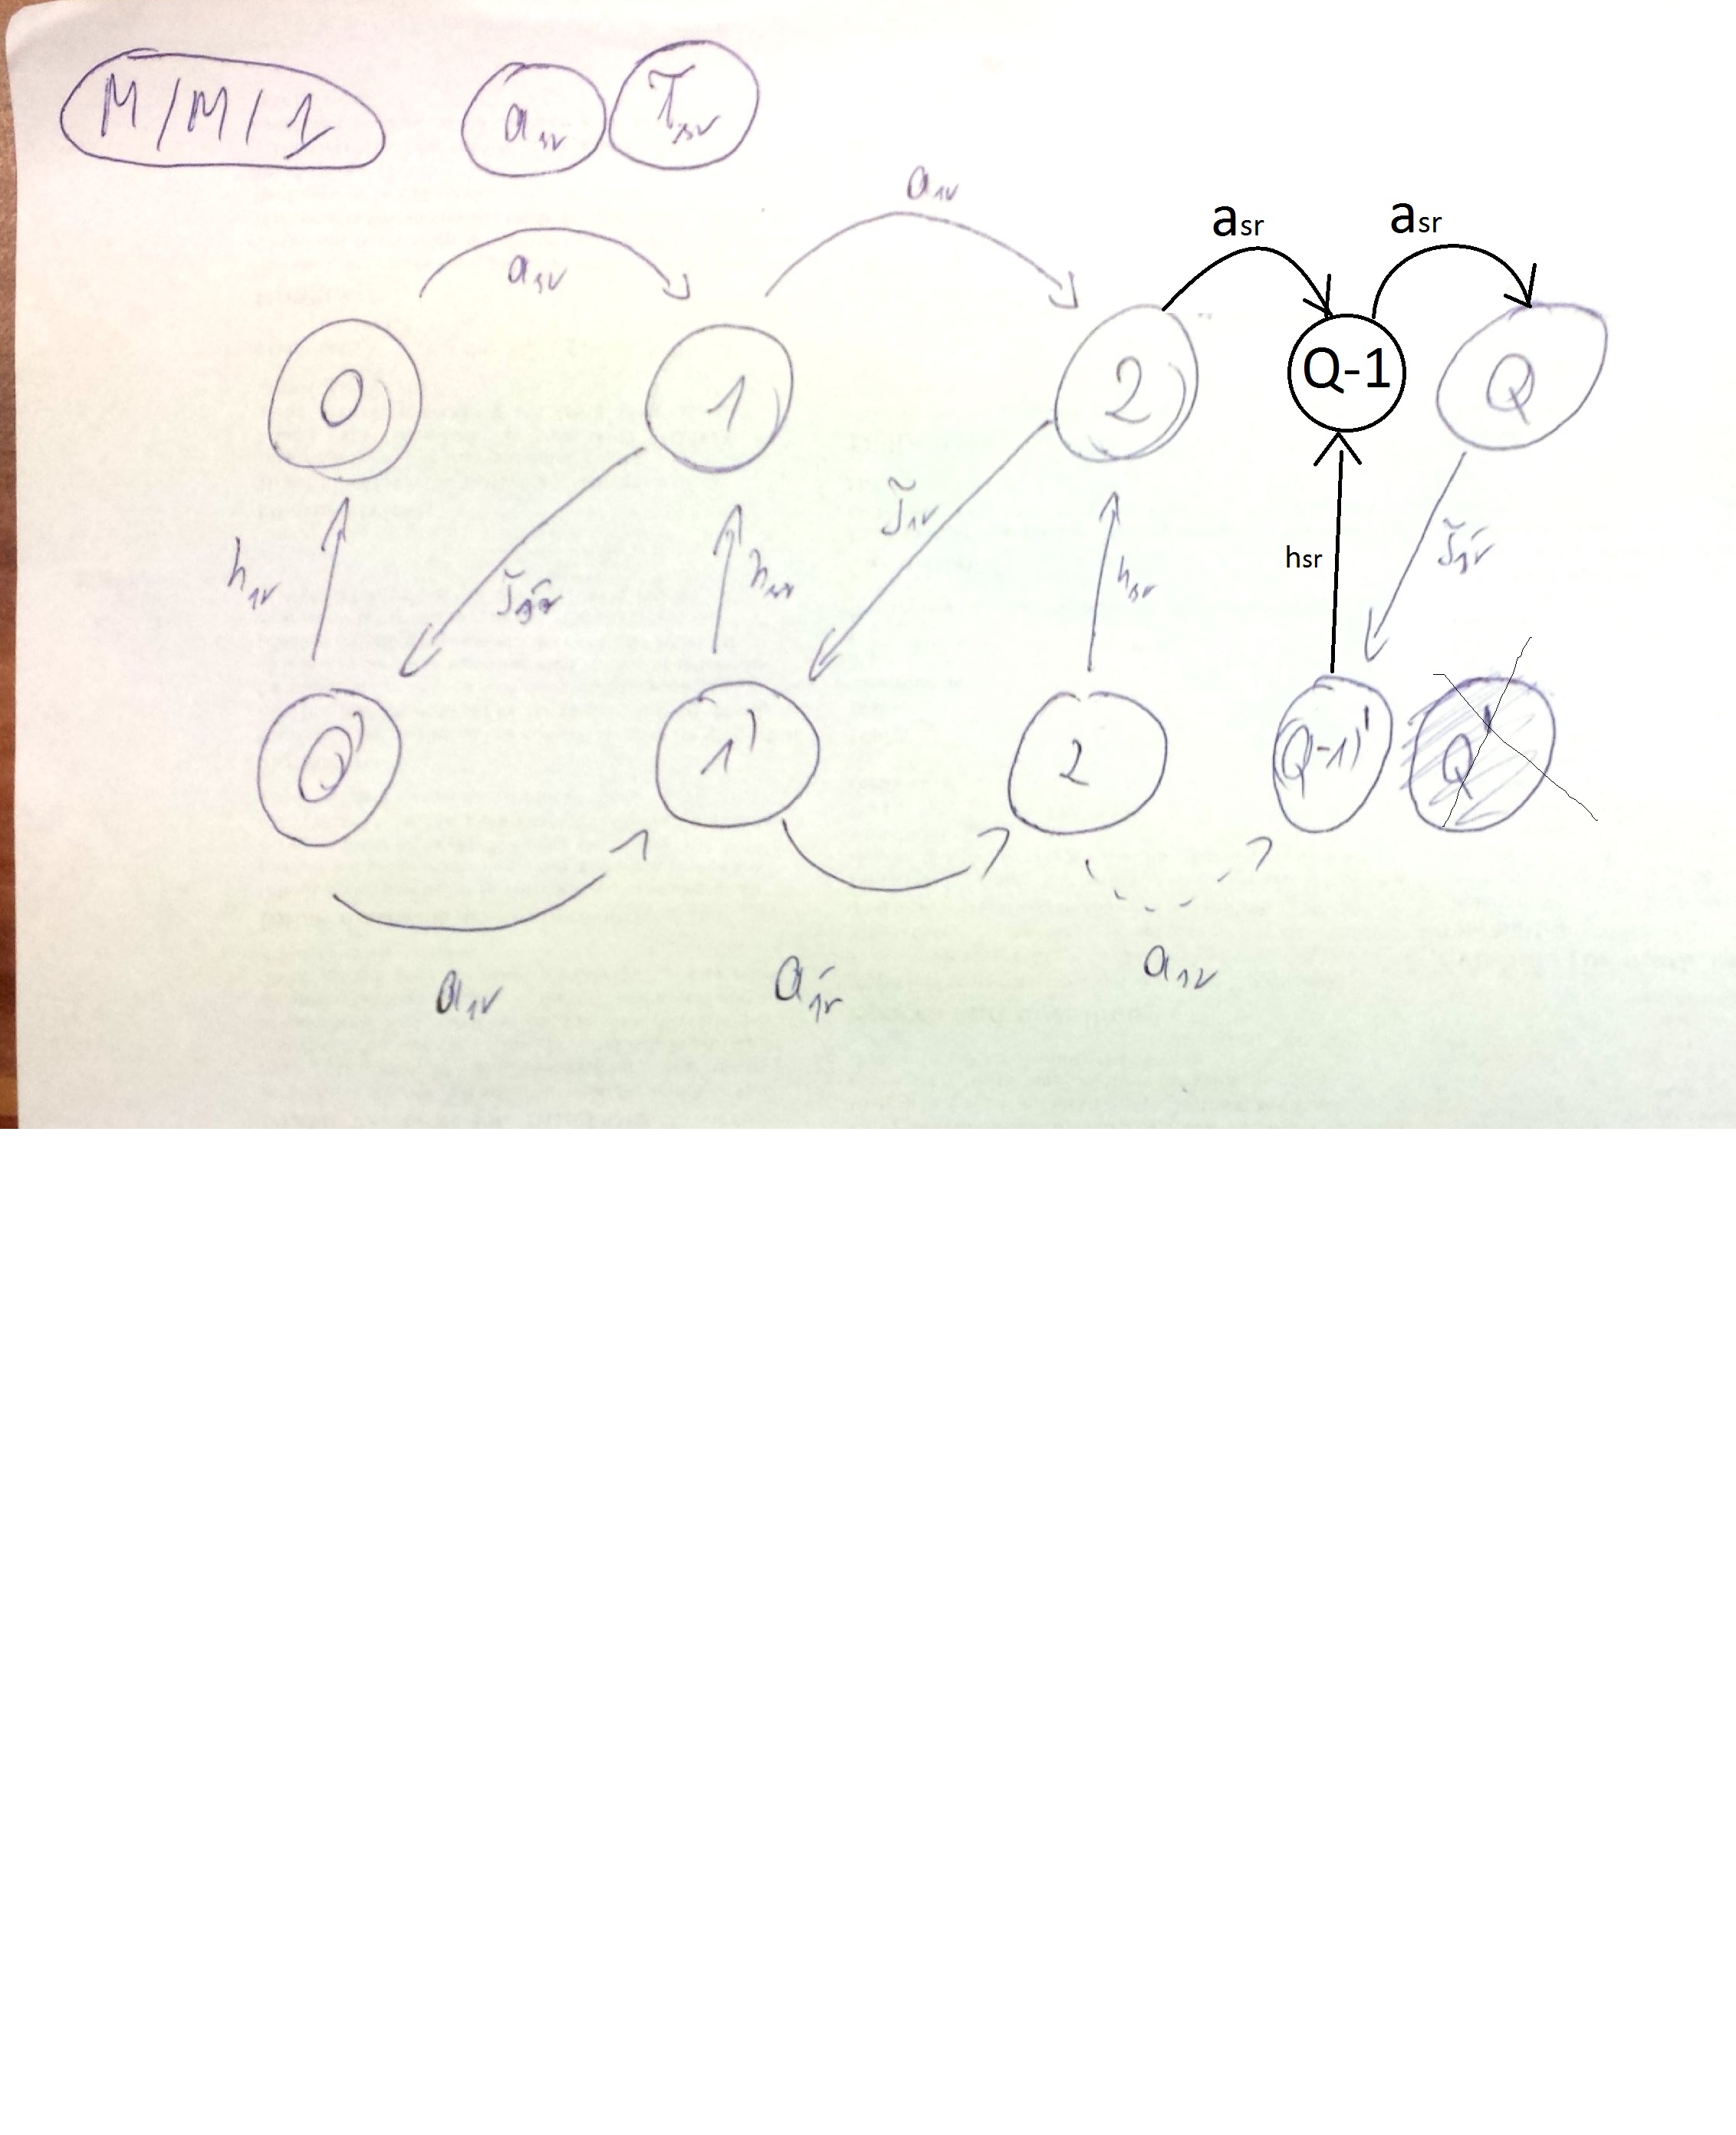 M/M/1 a_sr J̃_sr
a_sr a_sr a_sr a_sr
0 1 2 Q-1 Q
h_sr J̃_sr h_sr J̃_sr h_sr h_sr J̃_sr
0' 1' 2 (Q-1)' Q'
a_sr a_sr a_sr